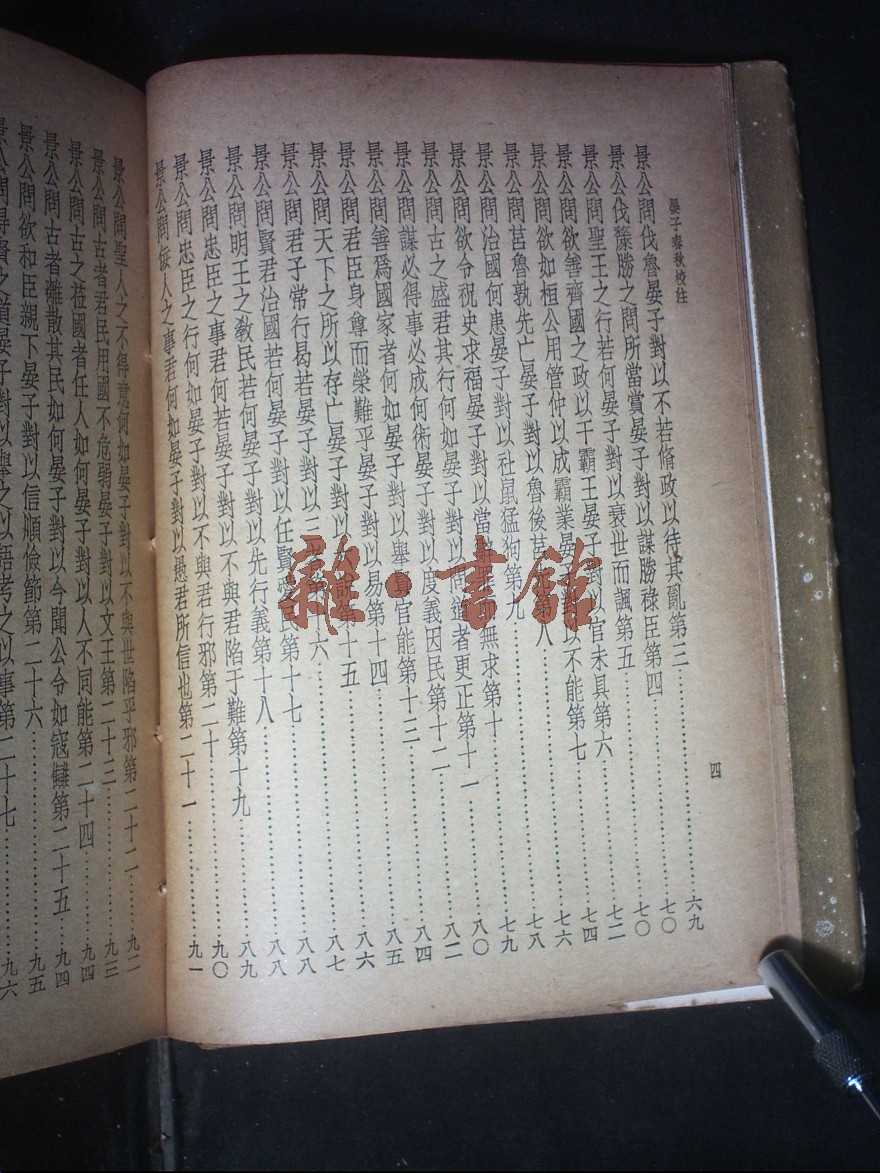 晏子春秋校注
四
景公問伐魯晏子對以不若脩政以待其亂第三……六九
景公伐斄勝之問所當賞晏子對以謀勝祿臣第四……七〇
景公問聖王之行若何晏子對以衰世而諷第五……七〇
景公問欲善齊國之政以干霸王晏子對以官未具第六……七二
景公問欲如桓公用管仲以成霸業晏子對以不能第七……七四
景公問莒魯孰先亡晏子對以魯後莒先第八……七六
景公問治國何患晏子對以社鼠猛狗第九……七八
景公問欲令祝史求福晏子對以當辭罪而無求第十……七九
景公問古之盛君其行何如晏子對以問道者更正第十一……八〇
景公問謀必得事必成何術晏子對以度義因民第十二……八二
景公問善爲國家者何如晏子對以舉賢官能第十三……八四
景公問君臣身尊而榮難乎晏子對以易第十四……八五
景公問天下之所以存亡晏子對以 第十五……八六
景公問君子常行曷若晏子對以三者第十六……八七
景公問賢君治國若何晏子對以任賢愛民第十七……八八
景公問明王之教民何若晏子對以先行義第十八……八八
景公問忠臣之事君何若晏子對以不與君陷于難第十九……八九
景公問忠臣之行何如晏子對以不與君行邪第二十……九〇
景公問佞人之事君何如晏子對以愚君所信也第二十一……九一
景公問聖人之不得意何如晏子對以不與世陷乎邪第二十二……九二
景公問古者君民用國不危弱晏子對以文王第二十三……九三
景公問古之莅國者任人如何晏子對以人不同能第二十四……九四
景公問古者離散其民如何晏子對以今聞公令如寇讎第二十五……九四
景公問欲和臣親下晏子對以信順儉節第二十六……九五
景公問得賢之道晏子對以舉之以語考之以事第二十七……九六
雜·書館